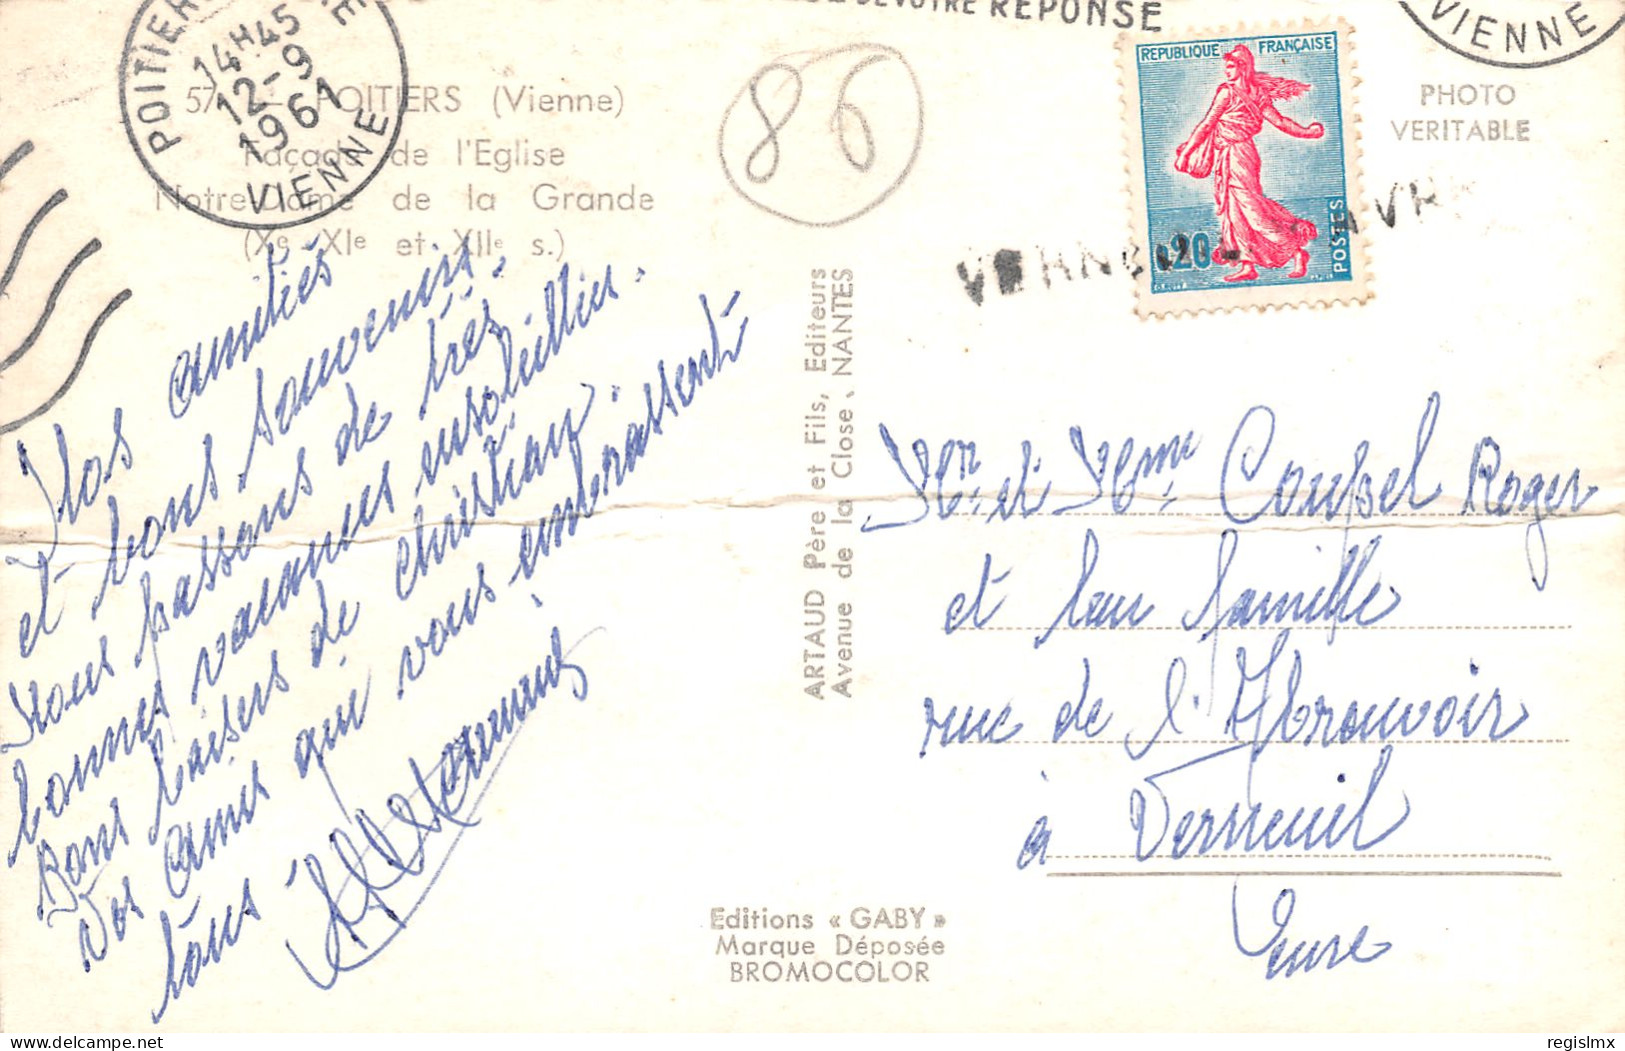 POITIERS
14H45
12-9
1961
VIENNE
DE VOTRE REPONSE
VIENNE
57 POITIERS (Vienne)
Façade de l'Eglise
Notre-Dame de la Grande
(Xe XIe et XIIe s.)
86
REPUBLIQUE FRANÇAISE
0,20
POSTES
PHOTO
VERITABLE
Nos amitiés
et bons souvenirs.
Nous passons de très
bonnes vacances ensoleillées.
Bons baisers de christian.
Vos amis qui vous embrassent
tous
ARTAUD Père et Fils, Editeurs
Avenue de la Close, NANTES
Mr et Mme Coupel Roger
et leur famille
rue de l'Abreuvoir
à Verneuil
Eure
Editions « GABY »
Marque Déposée
BROMOCOLOR
regislmx @ delcampe.net